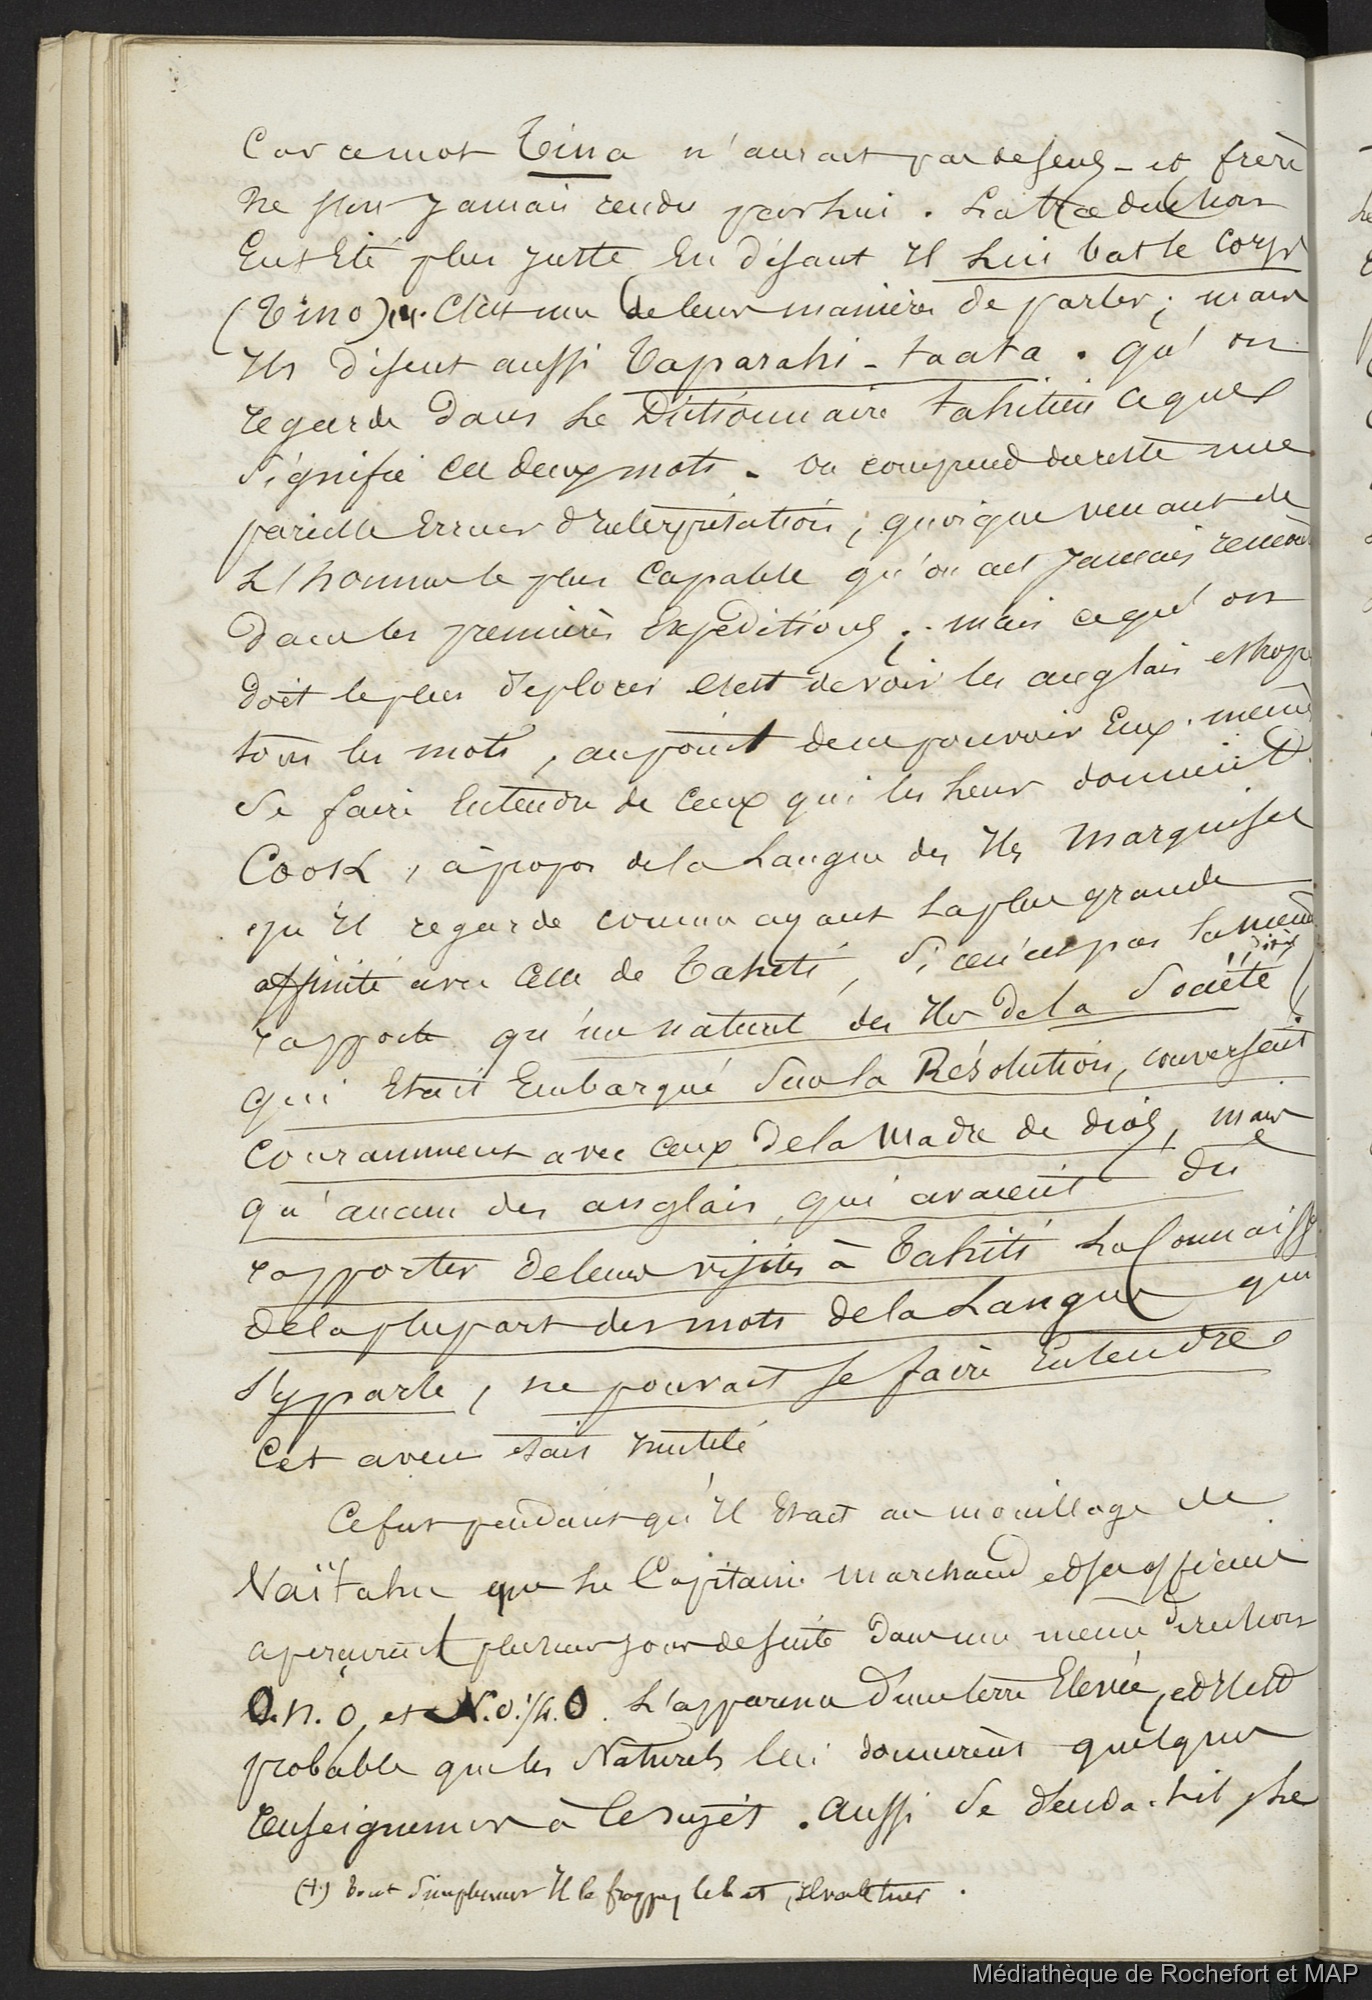 Car ce mot Tina n'aurait pas de sens - et frère
ne s'en jamais rendu par lui. La traduction
Eut Eté plus juste En disant Il Lui bat le corps
(Tino) C'est un de leurs manières de parler; mais
Ils disent aussi Taparahi - taata. qu'on
regarde dans Le Dictionnaire tahitien ce que
signifie ces deux mots. on comprend du reste une
pareille Erreur d'interprétation; quoique venant de
L'homme le plus capable qu'on ait jamais
dans les premières Expéditions; mais ce qu'on
doit le plus déplorer c'est de voir les anglais
tous les mots, au point de ne pouvoir Eux-même
se faire Entendre de ceux qui les Leur donnent
Cook, à propos de la Langue des Iles Marquises
qu'Il regarde comme ayant La plus grande
affinité avec celle de Tahiti, si ce n'est pas la même
dit-il
rapporte qu'un naturel des Iles de la Société
qui Etait Embarqué sur la Résolution, conversait
couramment avec ceux de la Madre de dios, mais
qu'aucun des anglais, qui avaient du
rapporter de leurs visites à Tahiti La Connaiss
de la plupart des mots de la Langue qui
s'y parle, ne pouvait se faire Entendre
Cet aveu était inutile
Ce fut pendant qu'Il Etait au mouillage de
Vaïtahu que Le Capitaine Marchand et ses officiers
aperçurent plusieurs jours de suite dans une même direction
O.N.O. et N.O.¼O. L'apparence d'une terre Elevée, et Il est
probable que les Naturels lui donnèrent quelques
renseignemens à ce sujet. Aussi se
(1) tout simplement Il le frappe, le bat,
Médiathèque de Rochefort et MAP